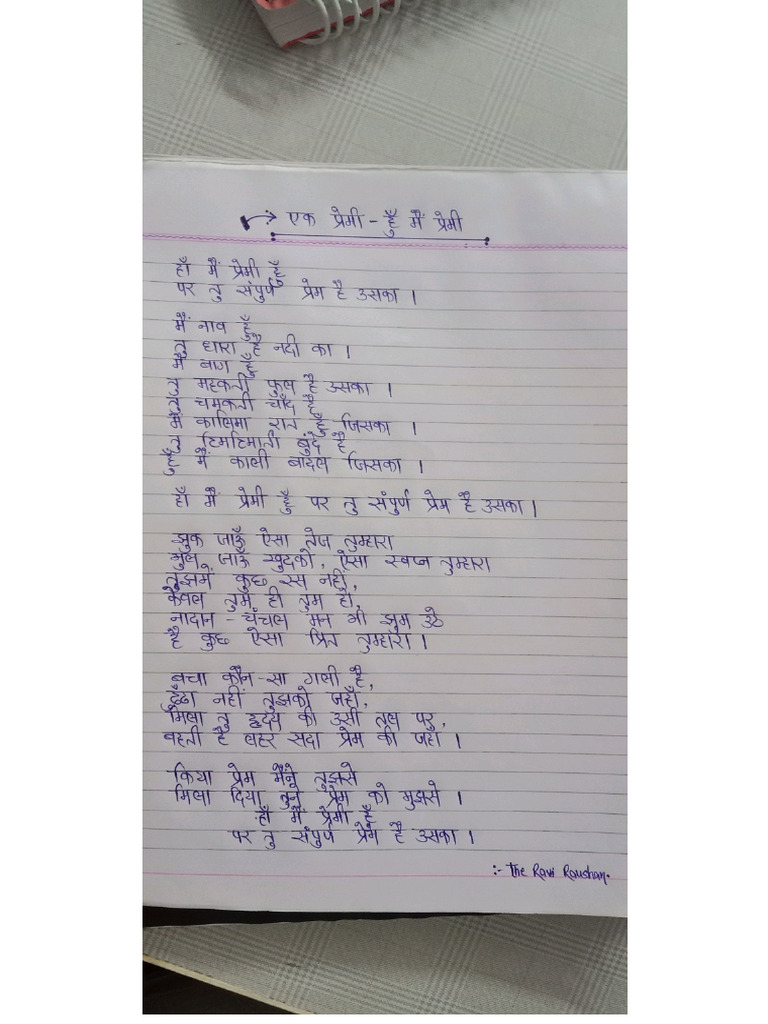 एक प्रेमी - हूँ मैं प्रेमी
हाँ मैं प्रेमी हूँ
पर तु संपुर्ण प्रेम है उसका ।
मैं नाव हूँ
तु धारा है नदी का ।
मैं बाग हूँ
तु महकती फुल है उसका ।
तु चमकती चाँद है
मैं कालिमा रात हूँ जिसका ।
तु टिमटिमाती बुंदे है
हूँ मैं काली बादल जिसका ।
हाँ मैं प्रेमी हूँ पर तु संपुर्ण प्रेम है उसका ।
झुक जाऊँ ऐसा तेज तुम्हारा
भुल जाऊँ खुदको, ऐसा स्वप्न तुम्हारा
तुझमें कुछ रस नहीं,
केवल तुम ही तुम हो,
नादान - चंचल मन भी झुम उठे
है कुछ ऐसा प्रित तुम्हारा ।
बचा कौन-सा गली है,
ढुंढा नहीं तुझको जहाँ,
मिला तु हृदय की उसी तल पर,
बहती है लहर सदा प्रेम की जहाँ ।
किया प्रेम मैंने तुझसे
मिला दिया तुने प्रेम को मुझसे ।
हाँ मैं प्रेमी हूँ
पर तु संपुर्ण प्रेम है उसका ।
:- The Ravi Raushan.